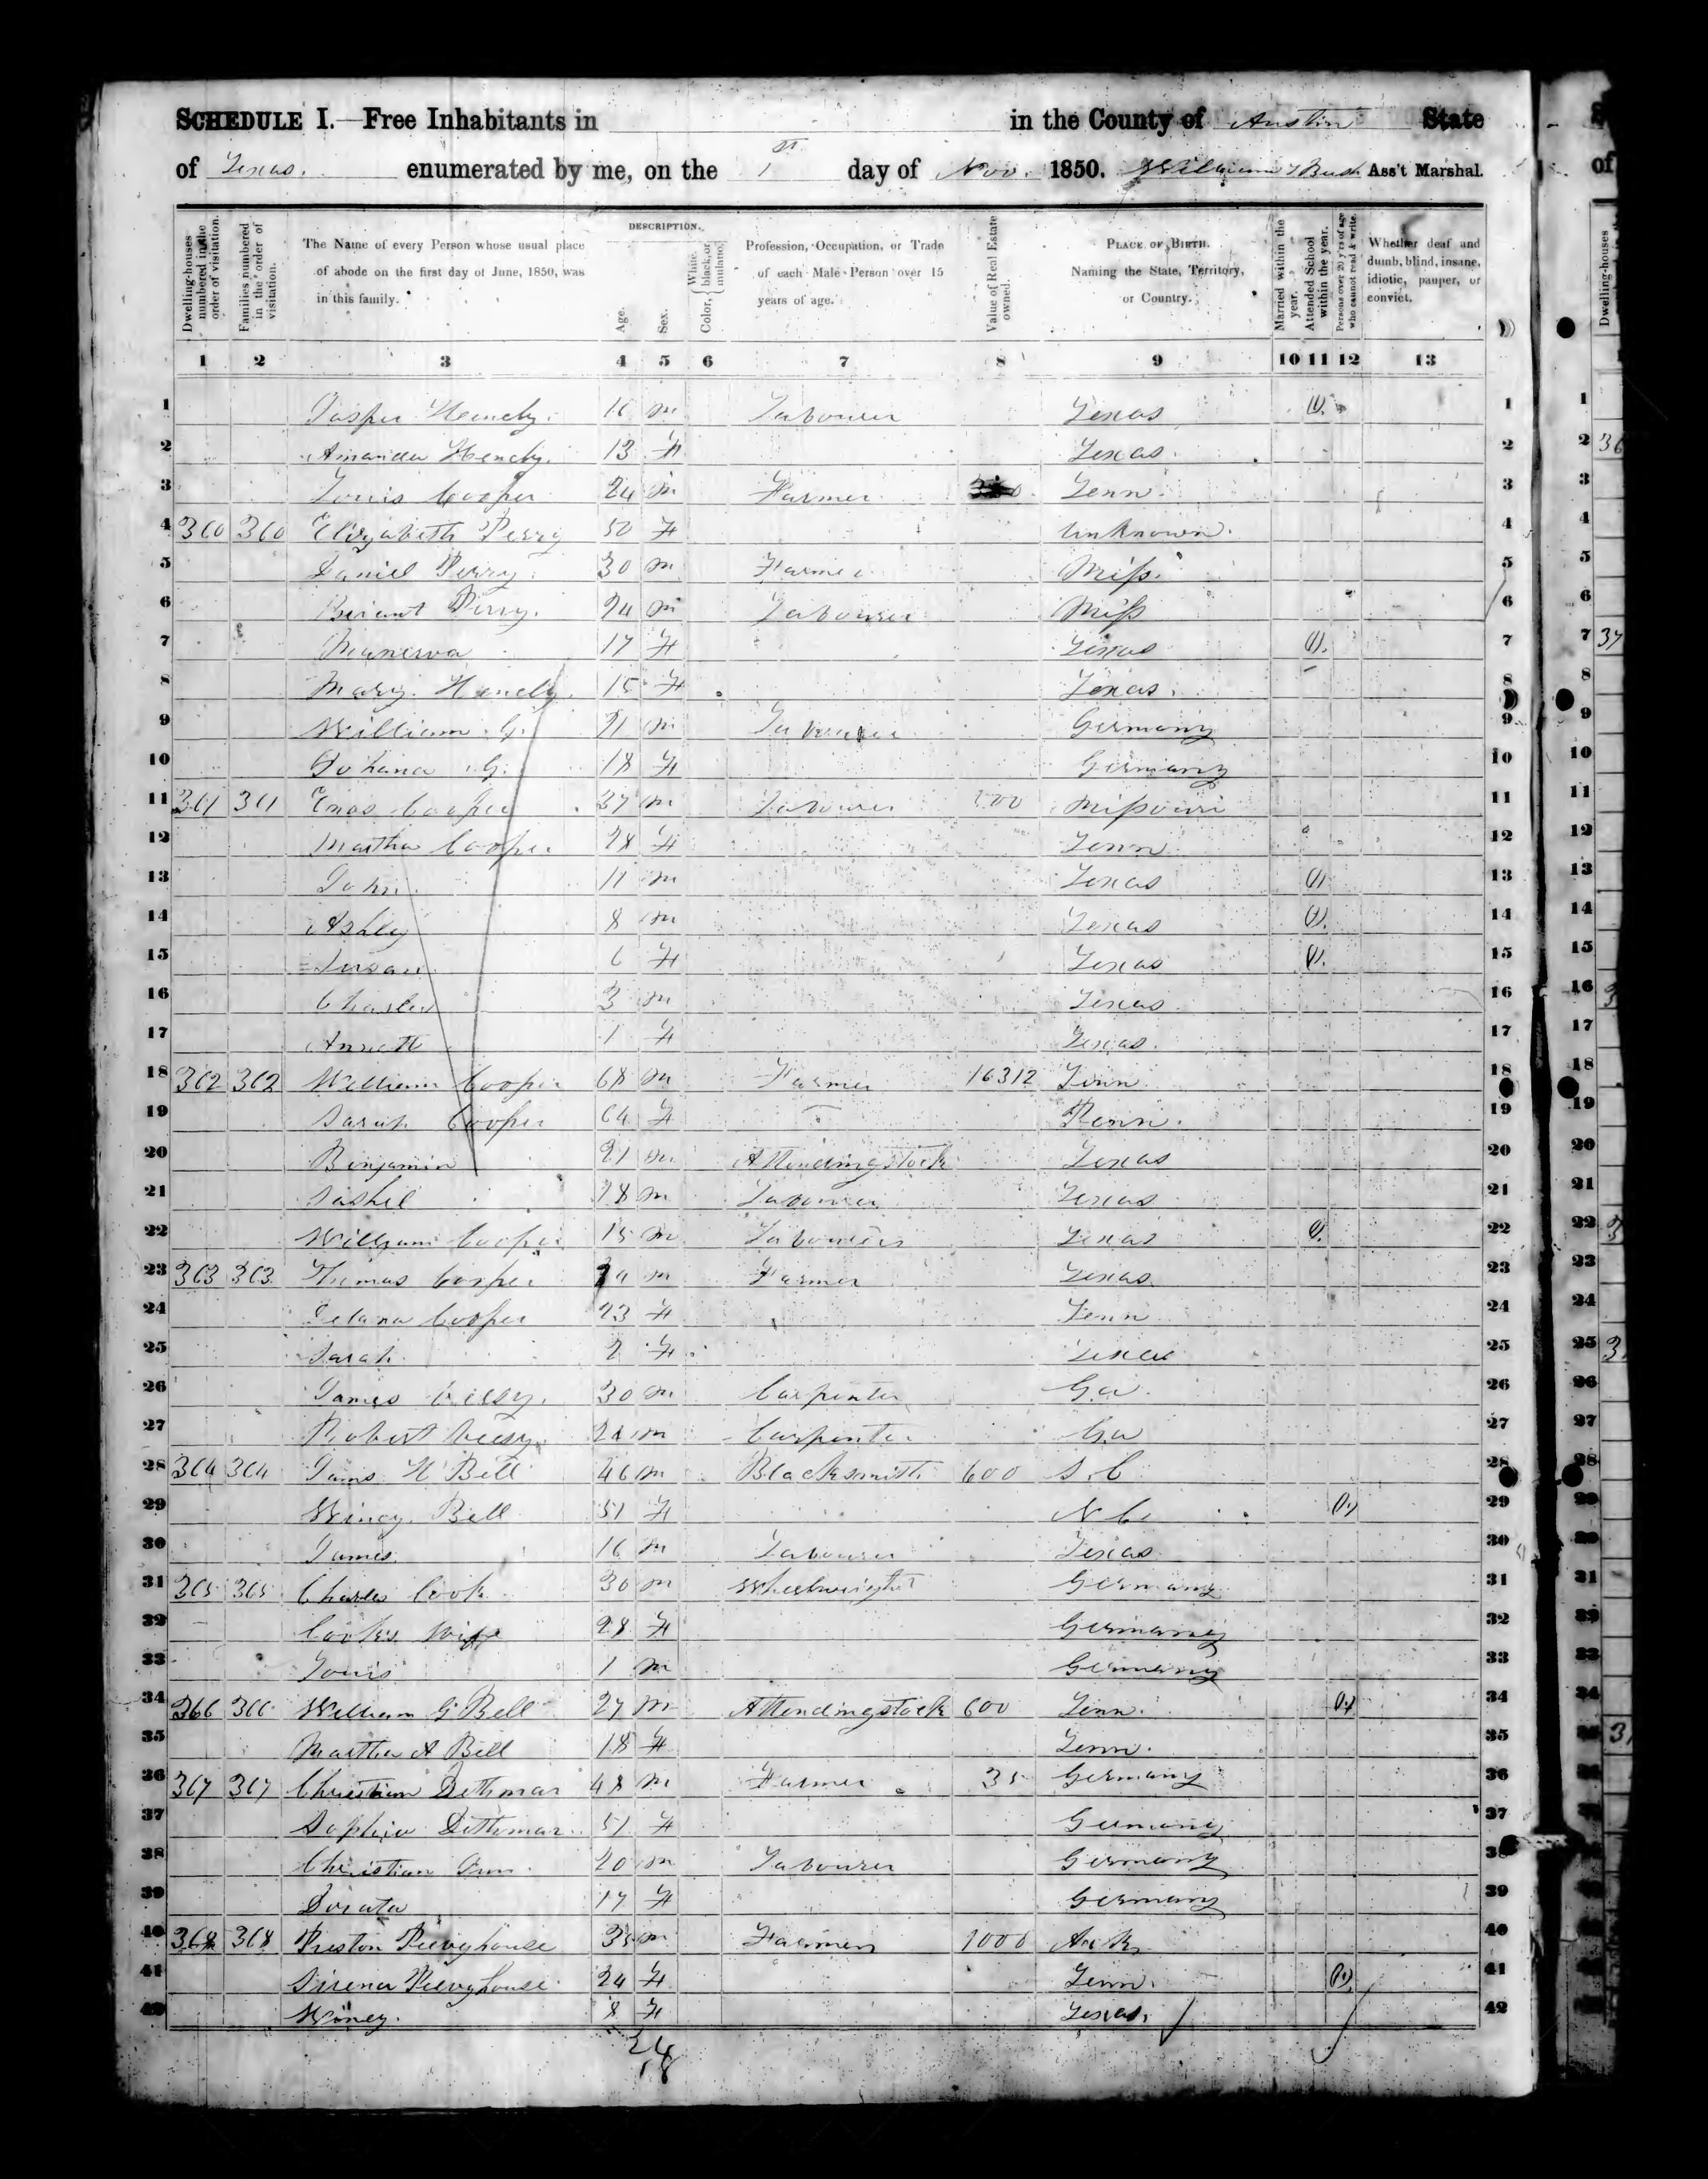 SCHEDULE I.—Free Inhabitants in in the County of Austin State
of Texas. enumerated by me, on the 1st day of Nov. 1850. William Ass't Marshal.
DESCRIPTION.
Dwelling-houses numbered in the order of visitation.
Families numbered in the order of visitation.
The Name of every Person whose usual place of abode on the first day of June, 1850, was in this family.
Age.
Sex.
Color, White, black, or mulatto.
Profession, Occupation, or Trade of each Male Person over 15 years of age.
Value of Real Estate owned.
PLACE OF BIRTH. Naming the State, Territory, or Country.
Married within the year.
Attended School within the year.
Persons over 20 y'rs of age who cannot read & write.
Whether deaf and dumb, blind, insane, idiotic, pauper, or convict.
1 2 3 4 5 6 7 8 9 10 11 12 13
1 Jasper 16 m Labourer Texas (1). 1
2 Amanda 13 F Texas. 2
3 Louis Cooper 24 m Farmer Tenn. 3
4 360 360 Elizabeth Perry 50 F Unknown. 4
5 Daniel Perry 30 m Farmer Miss. 5
6 Beriant Perry. 24 m Labourer Miss 6
7 Manerva 17 F Texas (1). 7
8 Mary 15 F Texas. 8
9 William G. 21 m Labourer Germany 9
10 Johana G. 18 F Germany 10
11 361 361 Enos Cooper 37 m Labourer Missouri 11
12 Martha Cooper 28 F Tenn. 12
13 John. 11 m Texas (1) 13
14 Ashley 8 m Texas (1). 14
15 Susan 6 F Texas (1). 15
16 Charles 3 m Texas 16
17 Annett 1 F Texas. 17
18 362 362 William Cooper 68 m Farmer 16312 Tenn 18
19 Sarah Cooper 64 F Penn. 19
20 Benjamin 21 m Attendingstock Texas 20
21 18 m Labourer Texas 21
22 William Cooper 15 m Labourers Texas (1). 22
23 363 363 Thomas Cooper m Farmer Texas. 23
24 Cooper 23 F Tenn 24
25 Sarah 2 F Texas 25
26 James 30 m Carpenter Ga. 26
27 Robert m Carpenter Ga 27
28 364 364 James H Bell 46 m Blacksmith 600 S. C 28
29 Winey Bell 51 F N C (1.) 29
30 James. 16 m Labourer Texas 30
31 365 365 Charles Cook 30 m Wheelwright Germany 31
32 Cook's Wife 28 F Germany 32
33 Louis 1 m Germany 33
34 366 366 William G Bell 27 m Attendingstock 600 Tenn. (1.) 34
35 Martha A Bell 18 F Tenn. 35
36 367 367 Christian Dethmar 48 m Farmer 35 Germany 36
37 Sophia Dethmar 51 F Germany 37
38 Christian Jun. 20 m Labourer Germany 38
39 Dorata 17 F Germany 39
40 368 368 Preston Peevyhouse 35 m Farmer 1000 Ark. 40
41 Sirena Peevyhouse 24 F Tenn. (1.) 41
42 Winey. 8 F Texas. 42
24
18